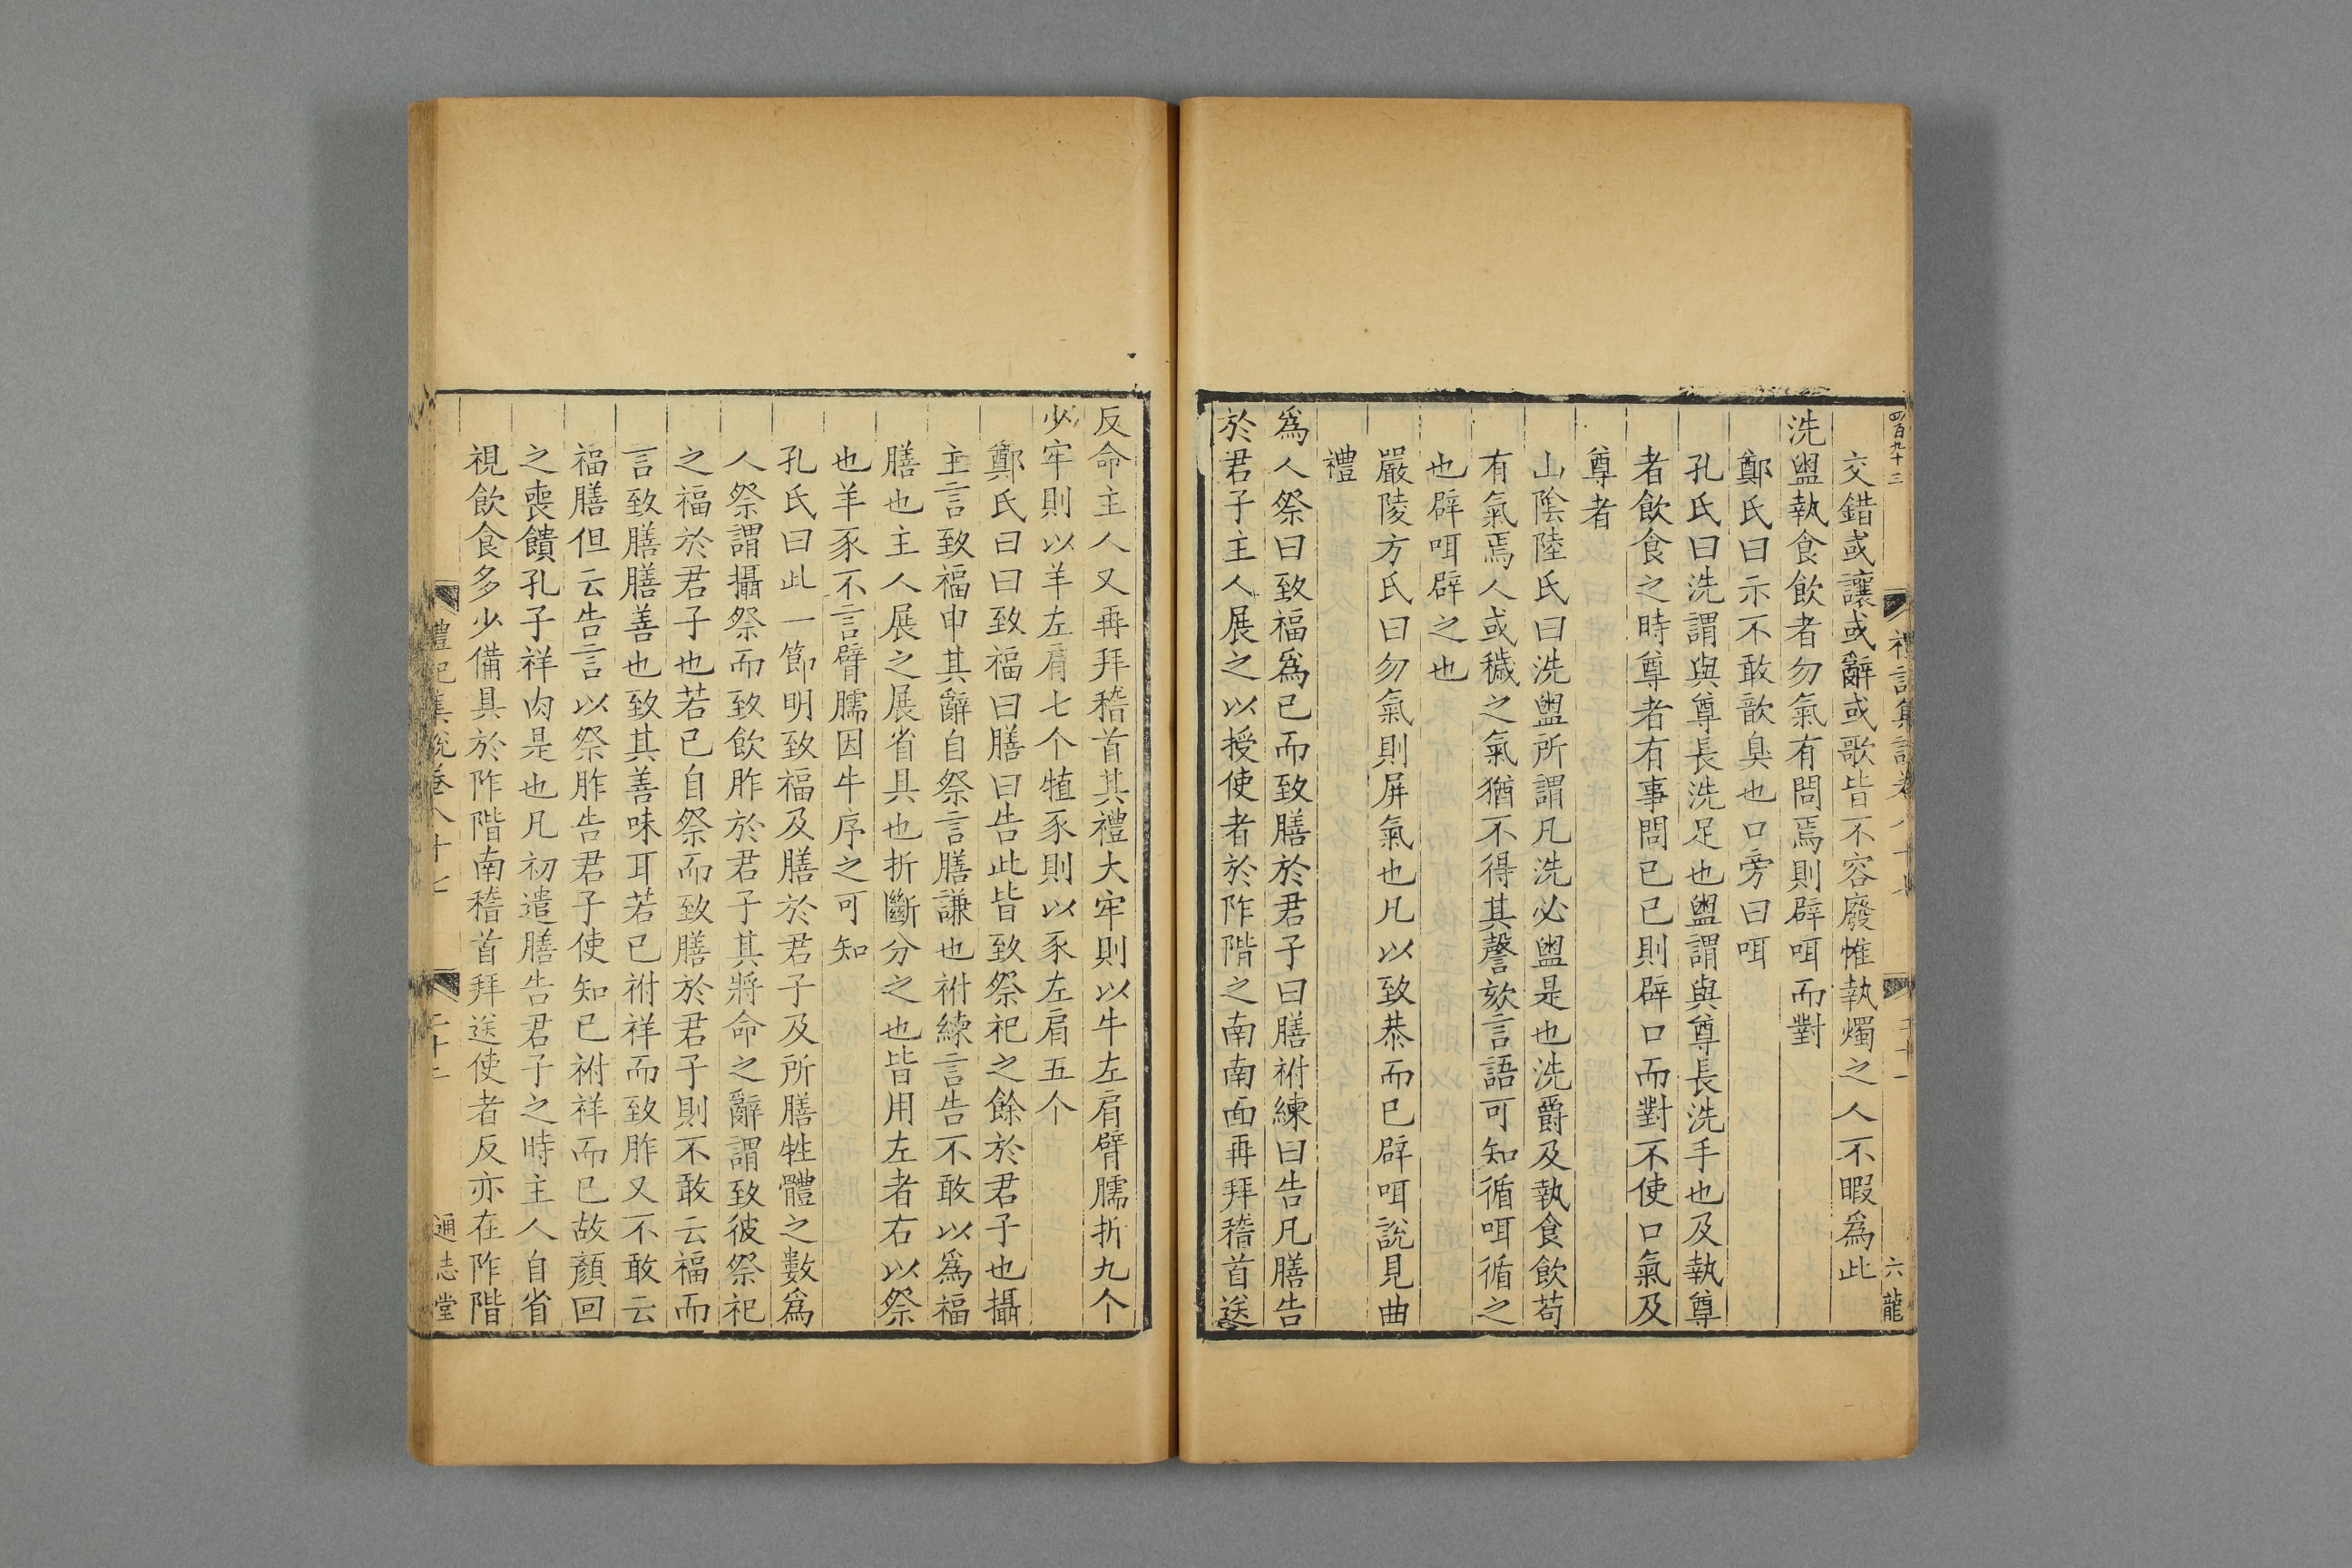 四百九十三
交錯或讓或辭或歌皆不容廢惟執燭之人不暇爲此
洗盥執食飲者勿氣有問焉則辟咡而對
鄭氏曰示不敢歆臭也口旁曰咡
孔氏曰洗謂與尊長洗足也盥謂與尊長洗手也及執尊
者飲食之時尊者有事問已已則辟口而對不使口氣及
尊者
山陰陸氏曰洗盥所謂凡洗必盥是也洗爵及執食飲苟
有氣焉人或穢之氣猶不得其謦欬言語可知循咡循之
也辟咡辟之也
嚴陵方氏曰勿氣則屏氣也凡以致恭而已辟咡說見曲
禮
爲人祭曰致福爲已而致膳於君子曰膳祔練曰告凡膳告
於君子主人展之以授使者於阼階之南南面再拜稽首送
六 龍
反命主人又再拜稽首其禮大牢則以牛左肩臂臑折九个
少牢則以羊左肩七个犆豕則以豕左肩五个
鄭氏曰曰致福曰膳曰告此皆致祭祀之餘於君子也攝
主言致福申其辭自祭言膳謙也祔練言告不敢以爲福
膳也主人展之展省具也折斷分之也皆用左者右以祭
也羊豕不言臂臑因牛序之可知
孔氏曰此一節明致福及膳於君子及所膳牲體之數爲
人祭謂攝祭而致飲胙於君子其將命之辭謂致彼祭祀
之福於君子也若已自祭而致膳於君子則不敢云福而
言致膳膳善也致其善味耳若已祔祥而致胙又不敢云
福膳但云告言以祭胙告君子使知已祔祥而已故顏回
之喪饋孔子祥肉是也凡初遣膳告君子之時主人自省
視飲食多少備具於阼階南稽首拜送使者反亦在阼階
禮記集說卷八十七
二十二
通志堂